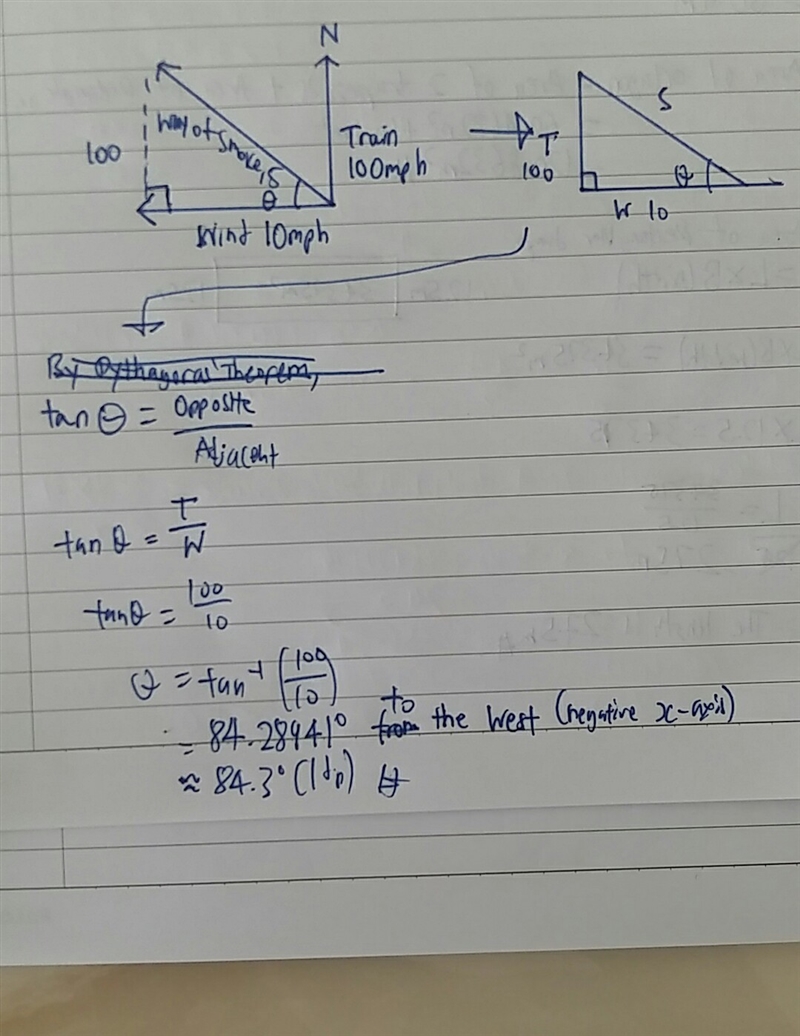 N
100
Way of Smoke, S
θ
Train
100mph
Wind 10mph
T
100
S
θ
W 10
By Pythagoras' Theorem,
tan θ = Opposite
Adjacent
tan θ = T
W
tan θ = 100
10
θ = tan⁻¹ (100
10)
to
= 84.28941° from the West (negative x-axis)
≈ 84.3° (1dp) #